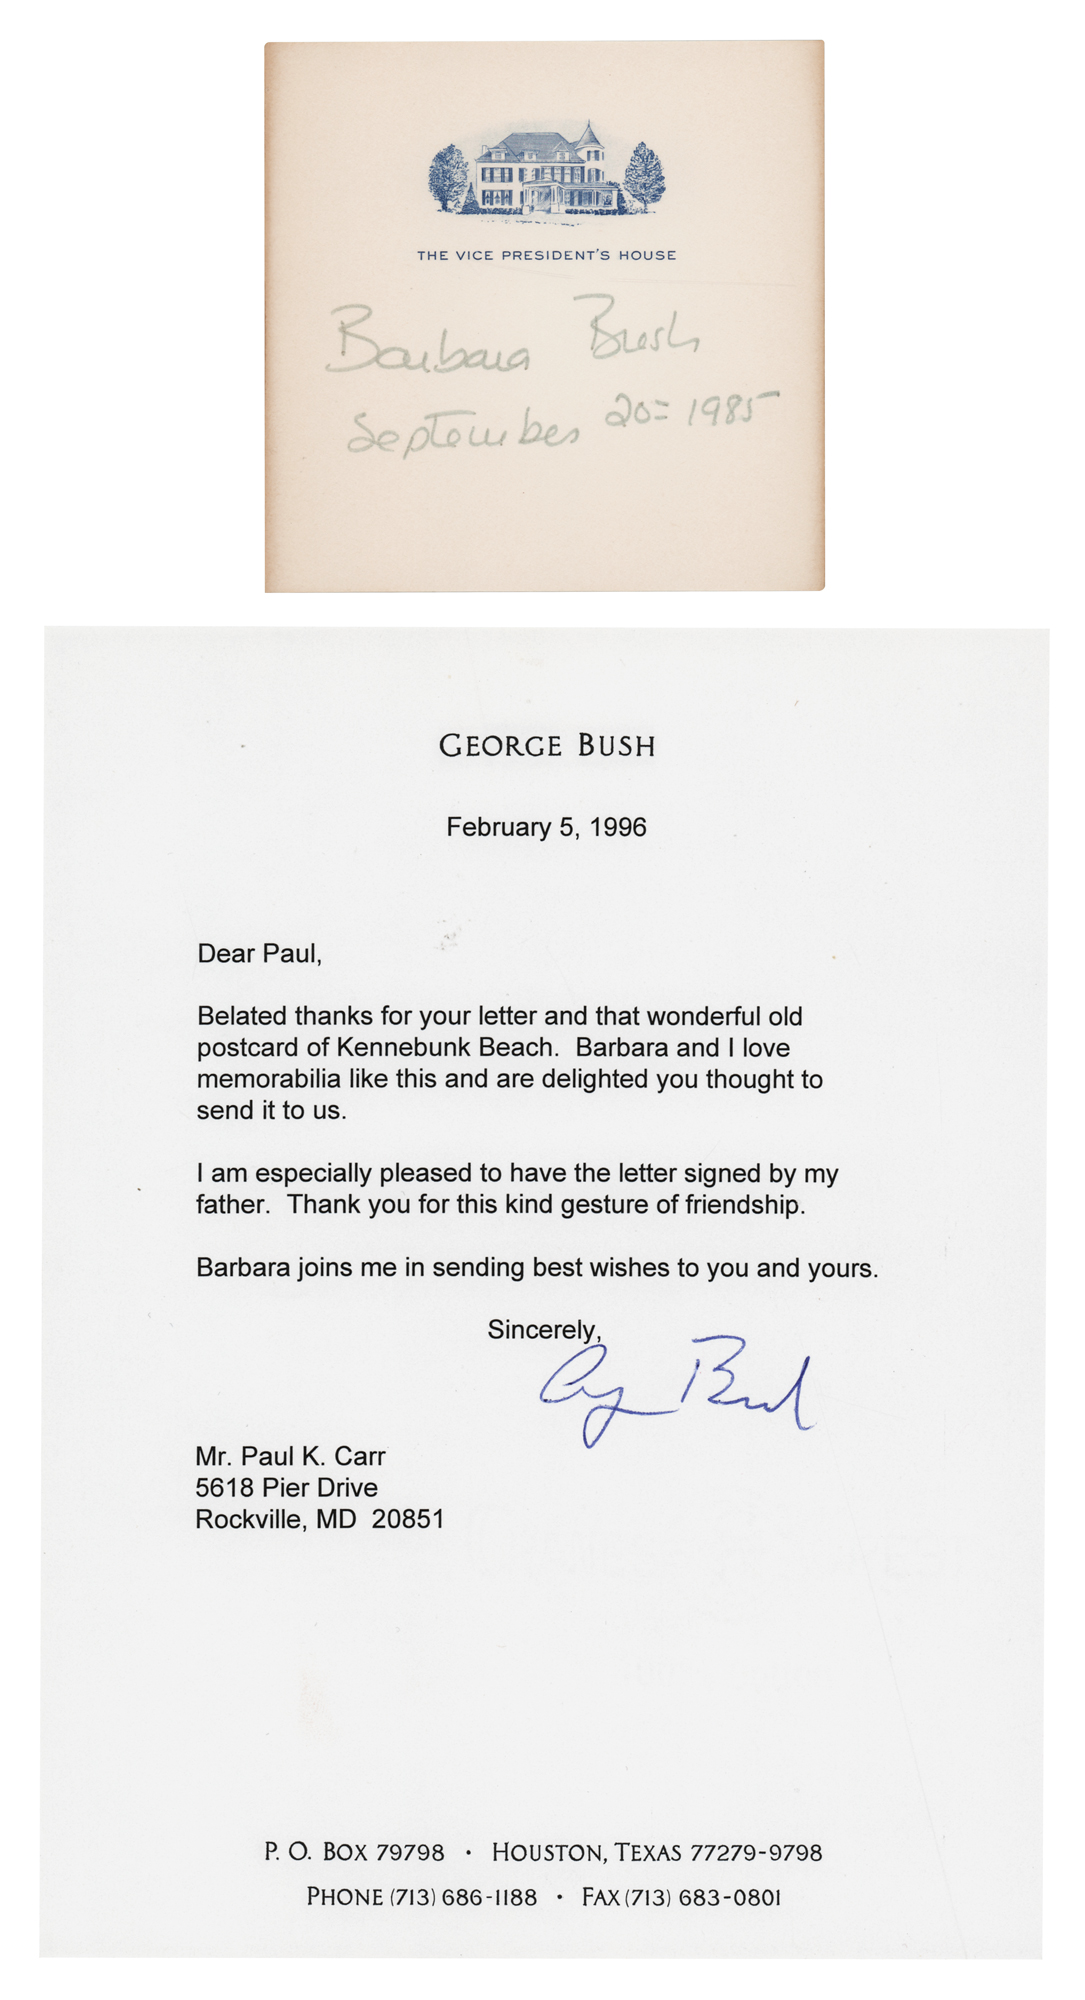 THE VICE PRESIDENT'S HOUSE
Barbara Bush
September 20= 1985
GEORGE BUSH
February 5, 1996
Dear Paul,
Belated thanks for your letter and that wonderful old
postcard of Kennebunk Beach. Barbara and I love
memorabilia like this and are delighted you thought to
send it to us.
I am especially pleased to have the letter signed by my
father. Thank you for this kind gesture of friendship.
Barbara joins me in sending best wishes to you and yours.
Sincerely,
Gg Bush
Mr. Paul K. Carr
5618 Pier Drive
Rockville, MD 20851
P. O. BOX 79798 • HOUSTON, TEXAS 77279-9798
PHONE (713) 686-1188 • FAX (713) 683-0801